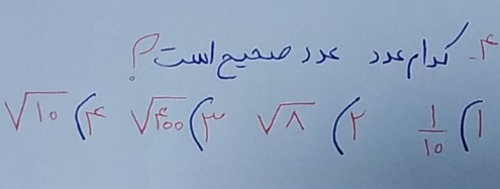 ۴- کدام عدد عدد صحیح است؟
۱) 1/10 ۲) √۸ ۳) √۴۰۰ ۴) √۱۰